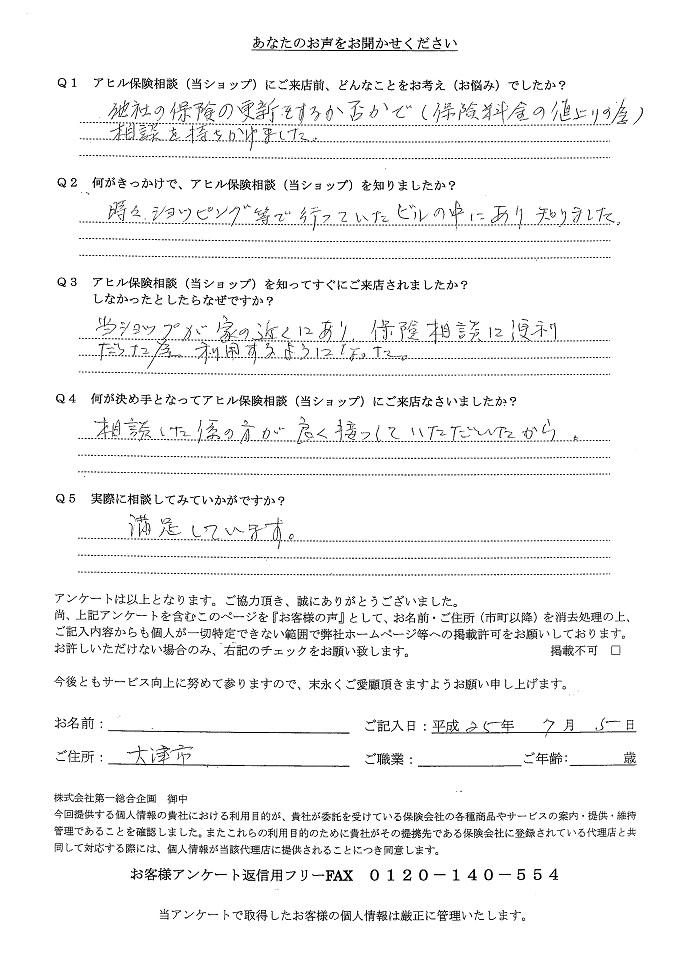 あなたのお声をお聞かせください
Q1 アヒル保険相談（当ショップ）にご来店前、どんなことをお考え（お悩み）でしたか？
他社の保険の更新をするか否かで（保険料金の値上りの為）
相談を持ちかけました。
Q2 何がきっかけで、アヒル保険相談（当ショップ）を知りましたか？
時々ショッピング等で行っていたビルの中にあり知りました。
Q3 アヒル保険相談（当ショップ）を知ってすぐにご来店されましたか？
しなかったとしたらなぜですか？
当ショップが家の近くにあり、保険相談に便利
だった為、利用するようになった。
Q4 何が決め手となってアヒル保険相談（当ショップ）にご来店なさいましたか？
相談した係の方が良く接っしていただいたから。
Q5 実際に相談してみていかがですか？
満足しています。
アンケートは以上となります。ご協力頂き、誠にありがとうございました。
尚、上記アンケートを含むこのページを『お客様の声』として、お名前・ご住所（市町以降）を消去処理の上、
ご記入内容からも個人が一切特定できない範囲で弊社ホームページ等への掲載許可をお願いしております。
お許しいただけない場合のみ、右記のチェックをお願い致します。 掲載不可 □
今後ともサービス向上に努めて参りますので、末永くご愛顧頂きますようお願い申し上げます。
お名前： ご記入日：平成 25年 7月 5日
ご住所： 大津市 ご職業： ご年齢： 歳
株式会社第一総合企画 御中
今回提供する個人情報の貴社における利用目的が、貴社が委託を受けている保険会社の各種商品やサービスの案内・提供・維持
管理であることを確認しました。またこれらの利用目的のために貴社がその提携先である保険会社に登録されている代理店と共
同して対応する際には、個人情報が当該代理店に提供されることにつき同意します。
お客様アンケート返信用フリーFAX 0120－140－554
当アンケートで取得したお客様の個人情報は厳正に管理いたします。